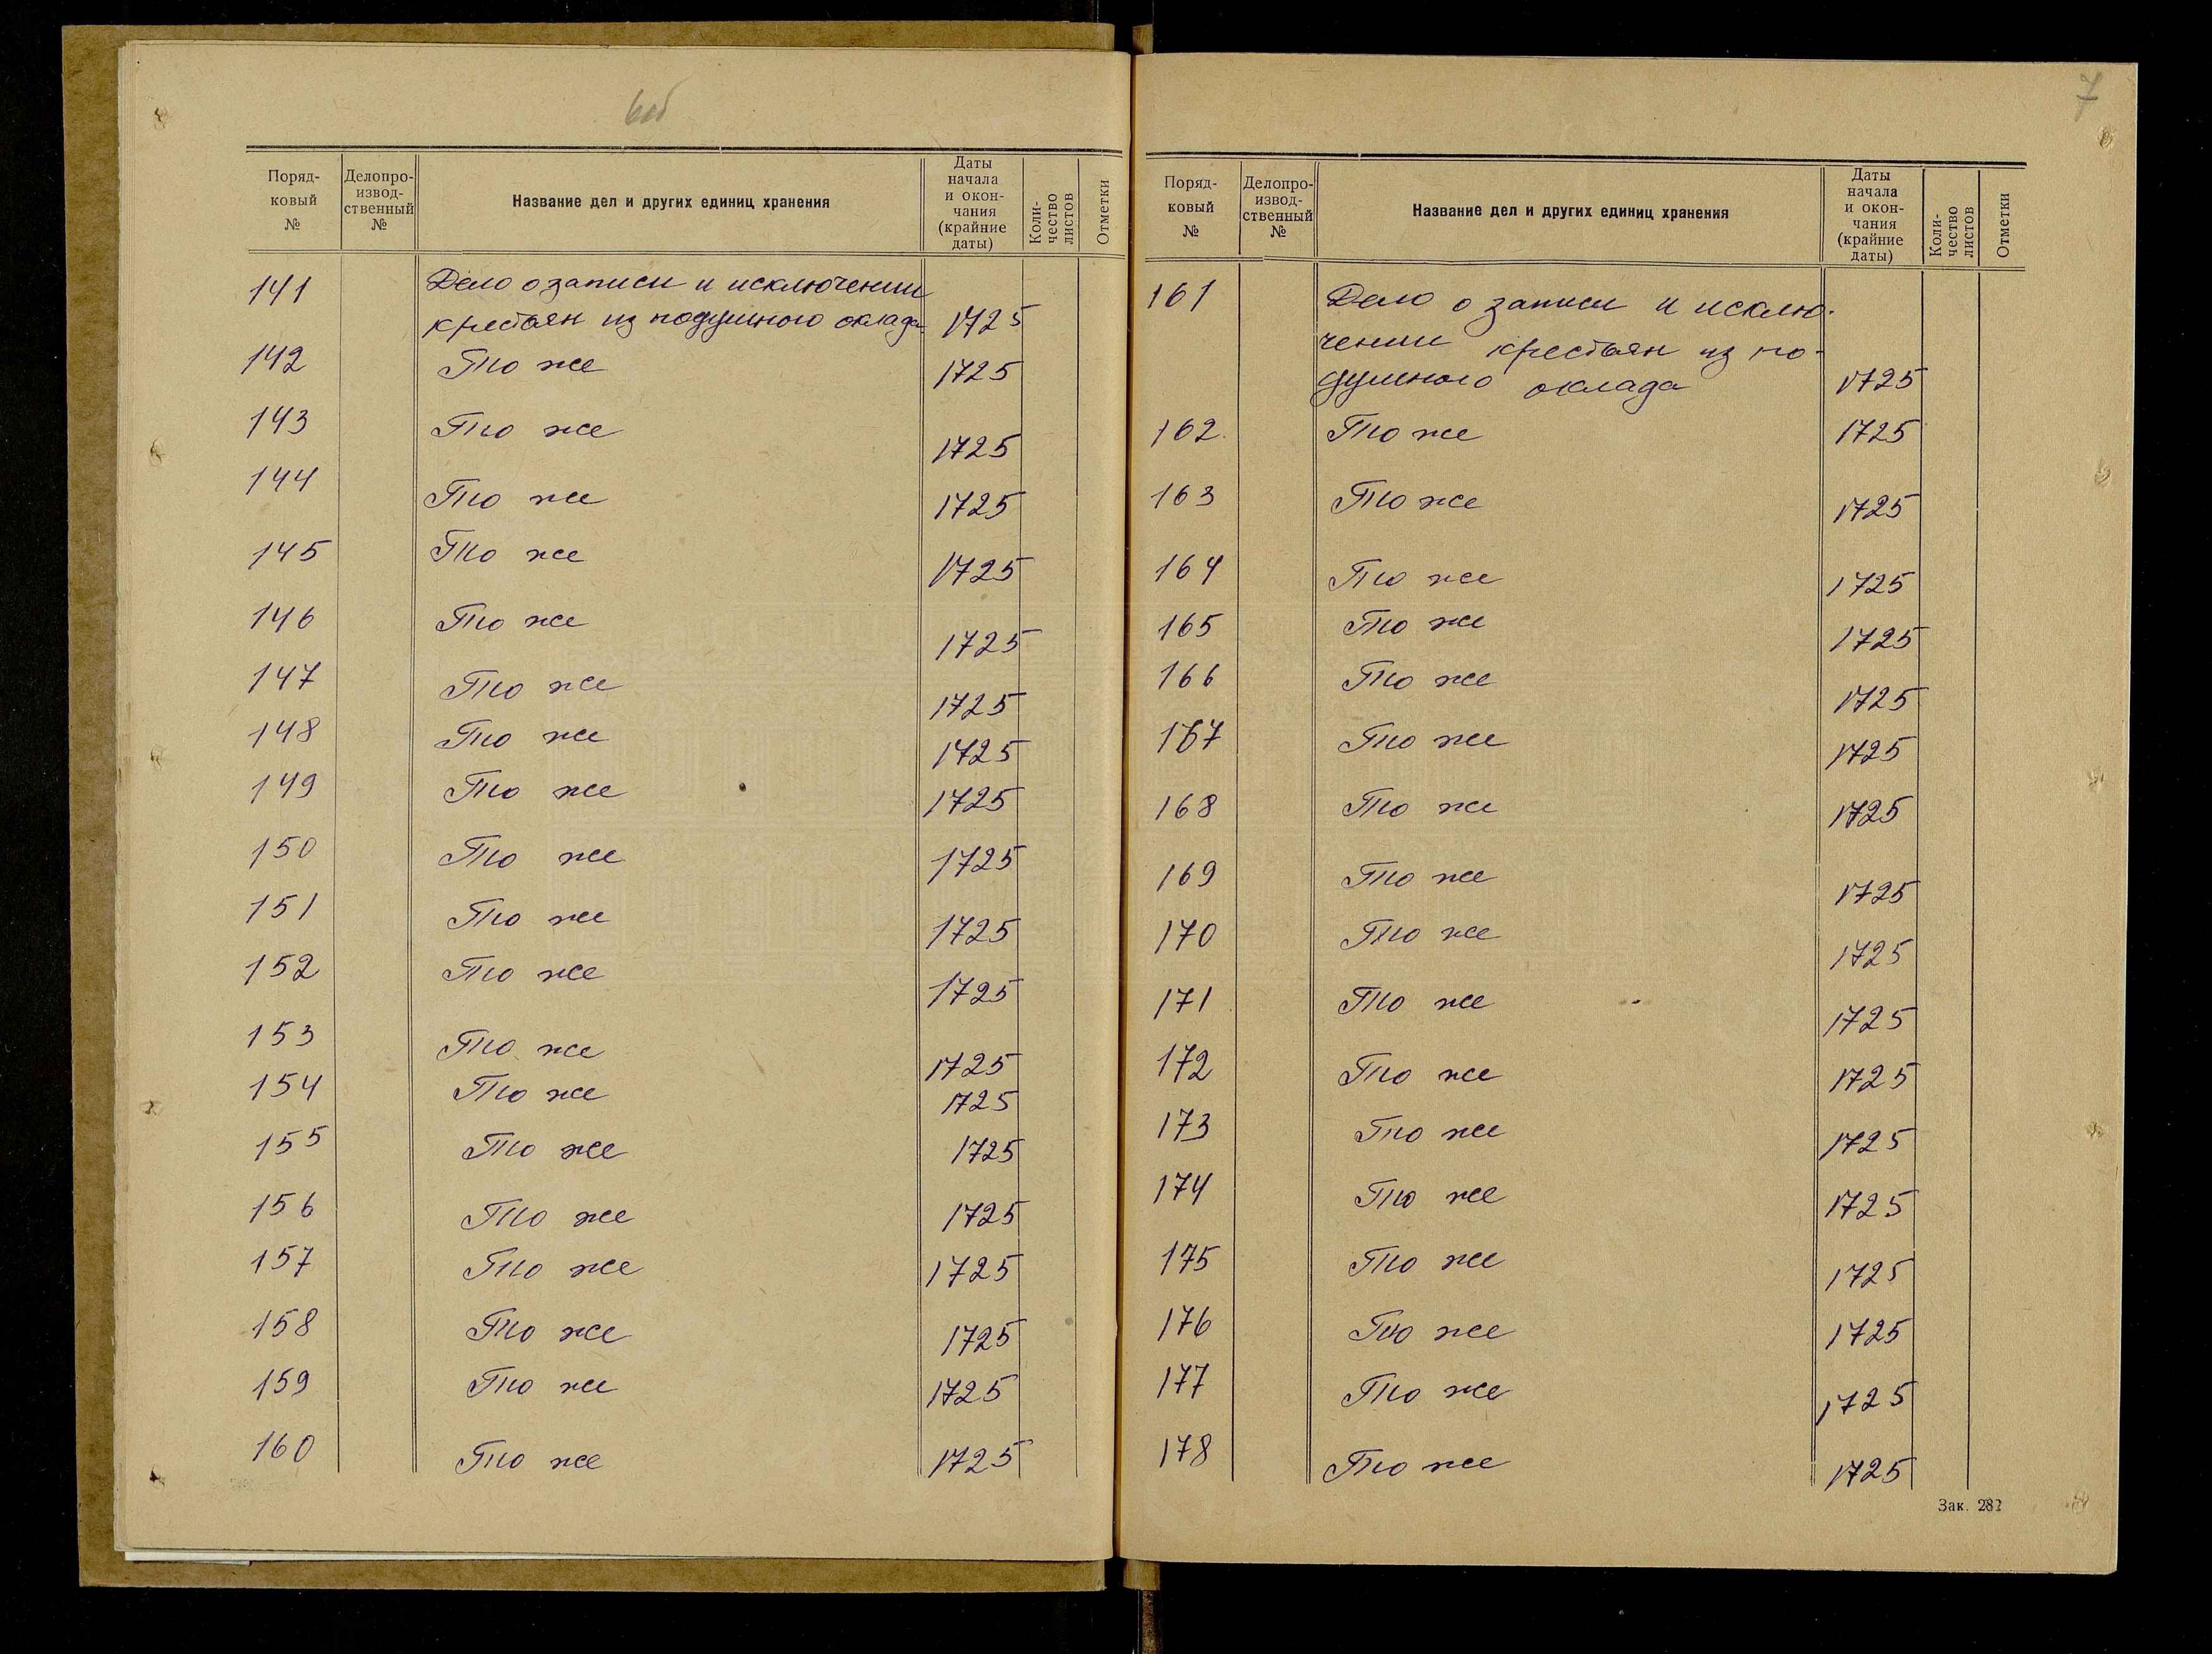 6об
Поряд-
ковый
№
Делопро-
извод-
ственный
№
Название дел и других единиц хранения
Даты
начала
и окон-
чания
(крайние
даты)
Коли-
чество
листов
Отметки
141 Дело о записи и исключении
крестьян из подушного оклада 1725
142 То же 1725
143 То же 1725
144 То же 1725
145 То же 1725
146 То же 1725
147 То же 1725
148 То же 1725
149 То же 1725
150 То же 1725
151 То же 1725
152 То же 1725
153 То же 1725
154 То же 1725
155 То же 1725
156 То же 1725
157 То же 1725
158 То же 1725
159 То же 1725
160 То же 1725
7
Поряд-
ковый
№
Делопро-
извод-
ственный
№
Название дел и других единиц хранения
Даты
начала
и окон-
чания
(крайние
даты)
Коли-
чество
листов
Отметки
161 Дело о записи и исклю-
чении крестьян из по-
душного оклада 1725
162 То же 1725
163 То же 1725
164 То же 1725
165 То же 1725
166 То же 1725
167 То же 1725
168 То же 1725
169 То же 1725
170 То же 1725
171 То же 1725
172 То же 1725
173 То же 1725
174 То же 1725
175 То же 1725
176 То же 1725
177 То же 1725
178 То же 1725
Зак.